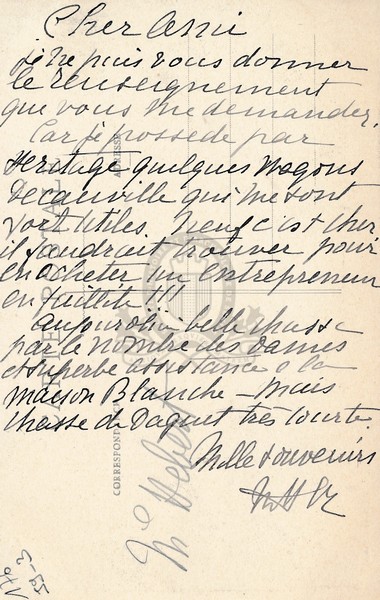 Cher Ami
je ne puis vous donner
le renseignement
que vous me demandez.
Car je possede par
Heritage quelques Wagons
Decauville qui me sont
fort utiles. Neuf c'est cher
il faudrait trouver pour
en acheter un entrepreneur
en faillite!!!
Aujourd'hui belle chasse
par le nombre des dames
et superbe assistance a la
maison Blanche - mais
chasse de Daguet très courte.
Mille souvenirs
CORRESPONDANCE
ADRESSE
CARTE POSTALE